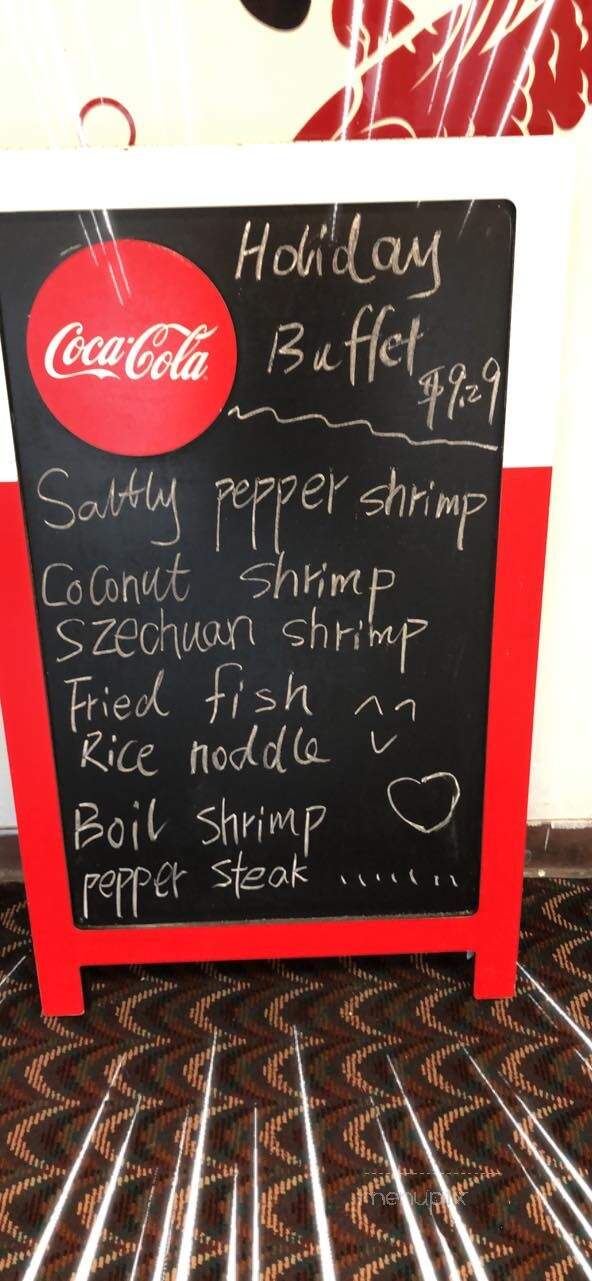 Holiday
Coca-Cola
Buffet
$9.29
Saltly pepper shrimp
Coconut shrimp
Szechuan shrimp
Fried fish
Rice noddle
Boil shrimp
pepper steak
menupix